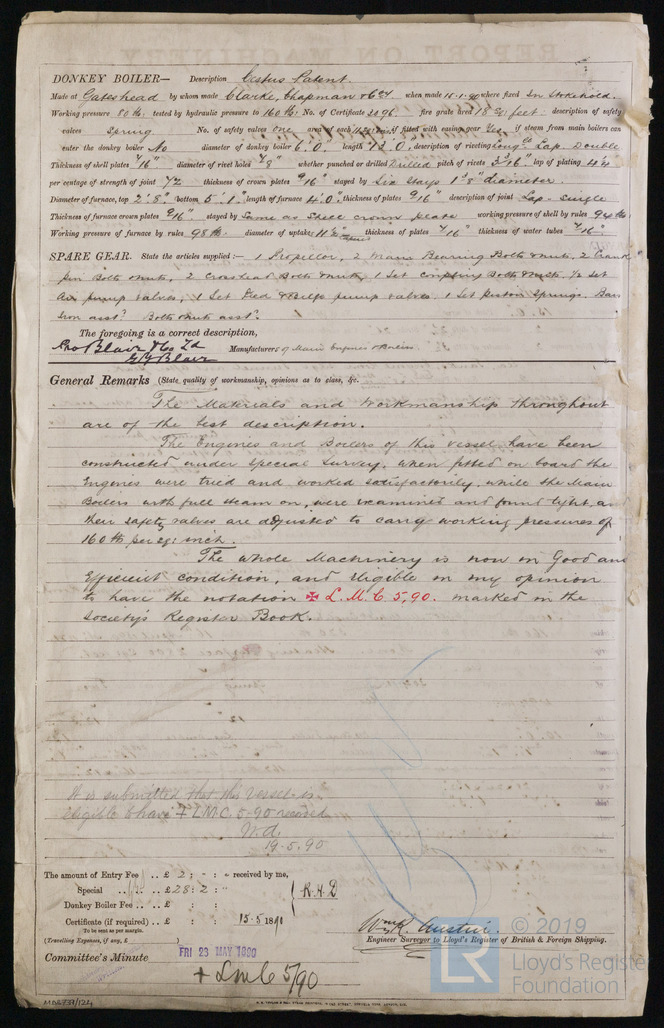 DONKEY BOILER— Description Cestus Patent.
Made at Gateshead by whom made Clarke, Chapman & Co when made 15-1-90 where fixed In Stokehold.
Working pressure 80 lb: tested by hydraulic pressure to 160 lb: No. of Certificate fire grate area 18 Sq: feet: description of safety
valves Spring No. of safety valves one area of each if fitted with easing gear Yes if steam from main boilers can
enter the donkey boiler No diameter of donkey boiler 6'.0" length 13'.0, description of riveting Long'l Lap. Double
Thickness of shell plates 7/16" diameter of rivet holes 7/8" whether punched or drilled Drilled pitch of rivets lap of plating
per centage of strength of joint 72 thickness of crown plates 9/16" stayed by Six Stays 1 7/8" diameter.
Diameter of furnace, top 2'.8" bottom 5'.1" length of furnace 4'.0", thickness of plates 9/16" description of joint Lap. Single
Thickness of furnace crown plates 9/16" stayed by Same as Shell crown plate working pressure of shell by rules 94 lb
Working pressure of furnace by rules 98 lb. diameter of uptake; 11 1/2" thickness of plates 7/16" thickness of water tubes 7/16"
SPARE GEAR. State the articles supplied:— 1 Propellor, 2 Main Bearing Bolts & nuts, 2 Crank
Pin Bolts & nuts, 2 Crosshead Bolts & nuts, 1 Set Coupling Bolts & nuts. 1/2 Set
Air pump valves, 1 Set Feed & Bilge pump valves. 1 Set Piston Springs. Bar
Iron asst'd Bolts & nuts asst'd
The foregoing is a correct description,
Geo Blair & Co Ld
G Y Blair Manufacturers of Main Engines & Boilers
General Remarks (State quality of workmanship, opinions as to class, &c.
The Materials and Workmanship throughout
are of the best description.
The Engines and Boilers of this vessel have been
constructed under Special Survey, when fitted on board the
Engines were tried and worked satisfactorily, while the Main
Boilers with full steam on, were examined and found tight, and
their safety valves are adjusted to carry working pressures of
160 lb per sq: inch.
The whole Machinery is now in Good and
Efficient condition, and eligible in my opinion
to have the notation ✠ L.M.C 5,90. marked in the
Society's Register Book.
It is submitted that this vessel is
eligible to have + L.M.C. 5-90 recorded
19.5.90
The amount of Entry Fee . . £ 2 : - : - received by me,
Special . . £ 28 : 2 : " R.H.D
Donkey Boiler Fee . . £ : :
Certificate (if required) . . £ : : 15.5 1890
To be sent as per margin.
(Travelling Expenses, if any, £ )
Wm R. Austin.
Engineer Surveyor to Lloyd's Register of British & Foreign Shipping.
Committee's Minute
FRI 23 MAY 1890
+ LMC 5/90
© 2019
LR
Lloyd's Register
Foundation